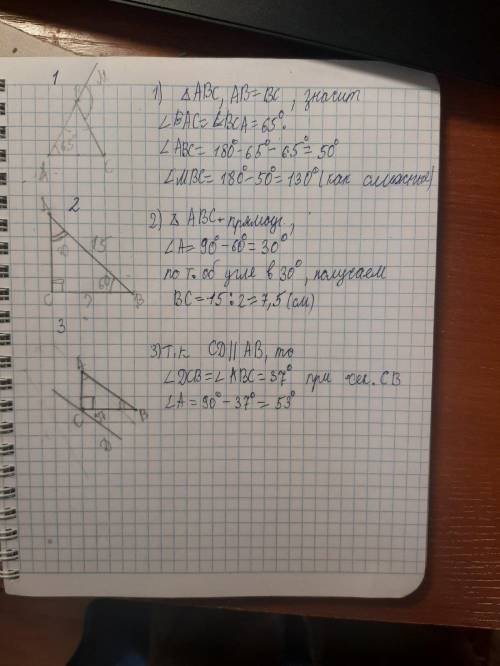 1
M
B
65°
A
C
1) △ ABC, AB=BC, значит
∠BAC=∠BCA=65°.
∠ABC=180°-65°-65°=50°
∠MBC=180°-50°=130° (как смежные)
2
A
15
60°
C
?
B
2) △ ABC- прямоуг,
∠A=90°-60°=30°
по т. об угле в 30°, получаем
BC=15:2=7,5(см)
3
A
C
37°
B
D
3) Т.к CD||AB, то
∠DCB=∠ABC=37° при сек. CB
∠A=90°-37°=53°